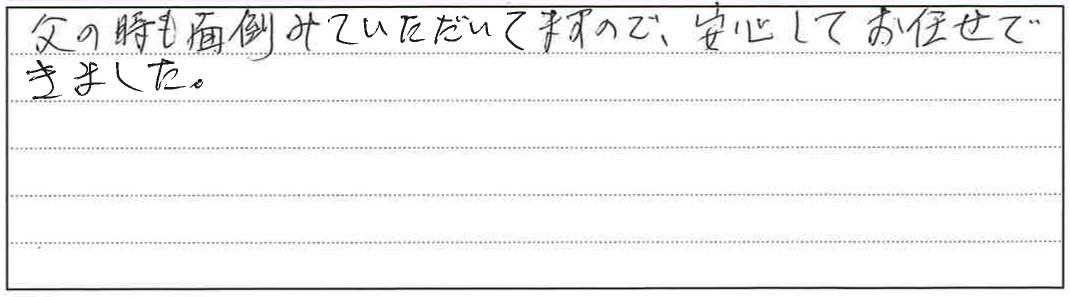 父の時も面倒みていただいてますので、安心してお任せで
きました。